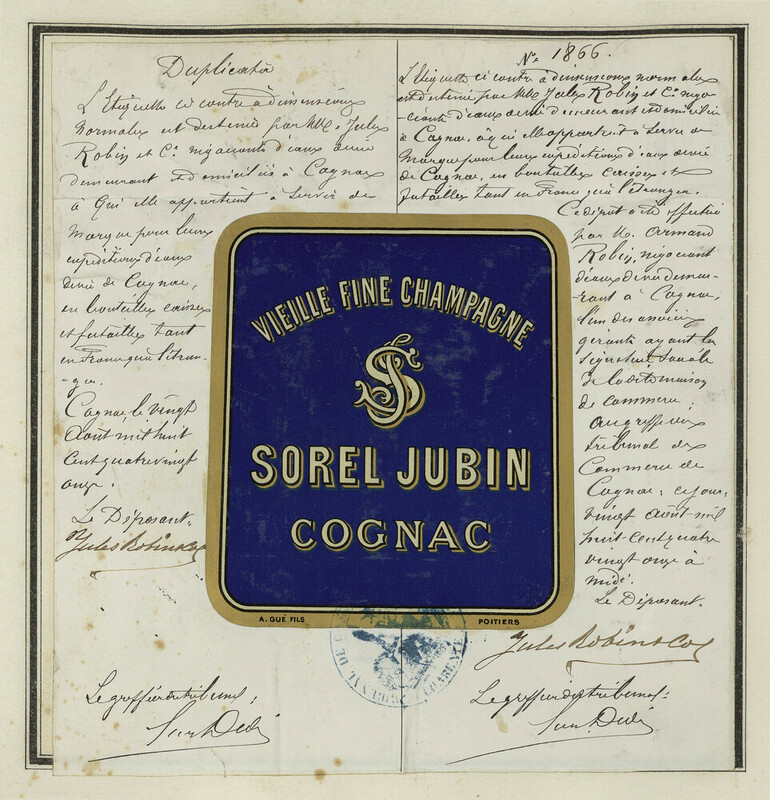 Duplicata
L'Etiquette ci contre à dimensions
normales est destinée par MM. Jules
Robin et Cie négociants d'eaux de vie
demeurant et domiciliés à Cognac
à qui elle appartient à servir de
marque pour leurs
expéditions d'eaux
de vie de Cognac,
en bouteilles caisses
et futailles tant
en France qu'à l'étran-
-ger.
Cognac, le vingt
Août mil huit
cent quatre vingt
onze.
Le Déposant.
Jules Robin & Co
Le greffier du tribunal;
No 1866.
L'Etiquette ci contre à dimensions normales
est destinée par MM. Jules Robin et Cie négo-
ciants d'eaux de vie demeurant et domiciliés
à Cognac, à qui elle appartient à servir de
marque pour leurs expéditions d'eaux de vie
de Cognac, en bouteilles caisses et
futailles tant en France qu'à l'étranger.
Ce dépôt a été effectué
par M. Armand
Robin, négociant
d'eaux de vie demeu-
rant à Cognac,
l'un des associés
gérants ayant la
signature sociale
de la dite maison
de commerce;
au greffe du
tribunal de
Commerce de
Cognac; ce jour
vingt août mil
huit cent quatre
vingt onze à
midi.
Le Déposant.
Jules Robin & Co
Le greffier du tribunal;
VIEILLE FINE CHAMPAGNE
SJ
SOREL JUBIN
COGNAC
A. GUÉ FILS POITIERS
CHARENTE